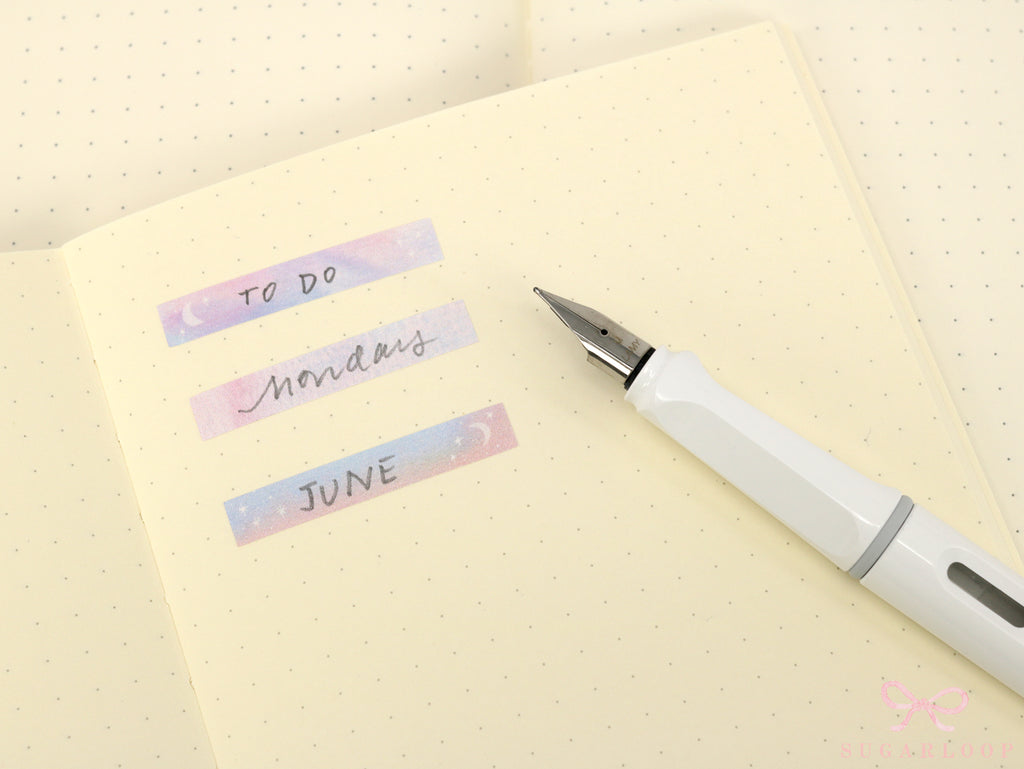 TO DO
Mondays
JUNE
SUGARLOOP